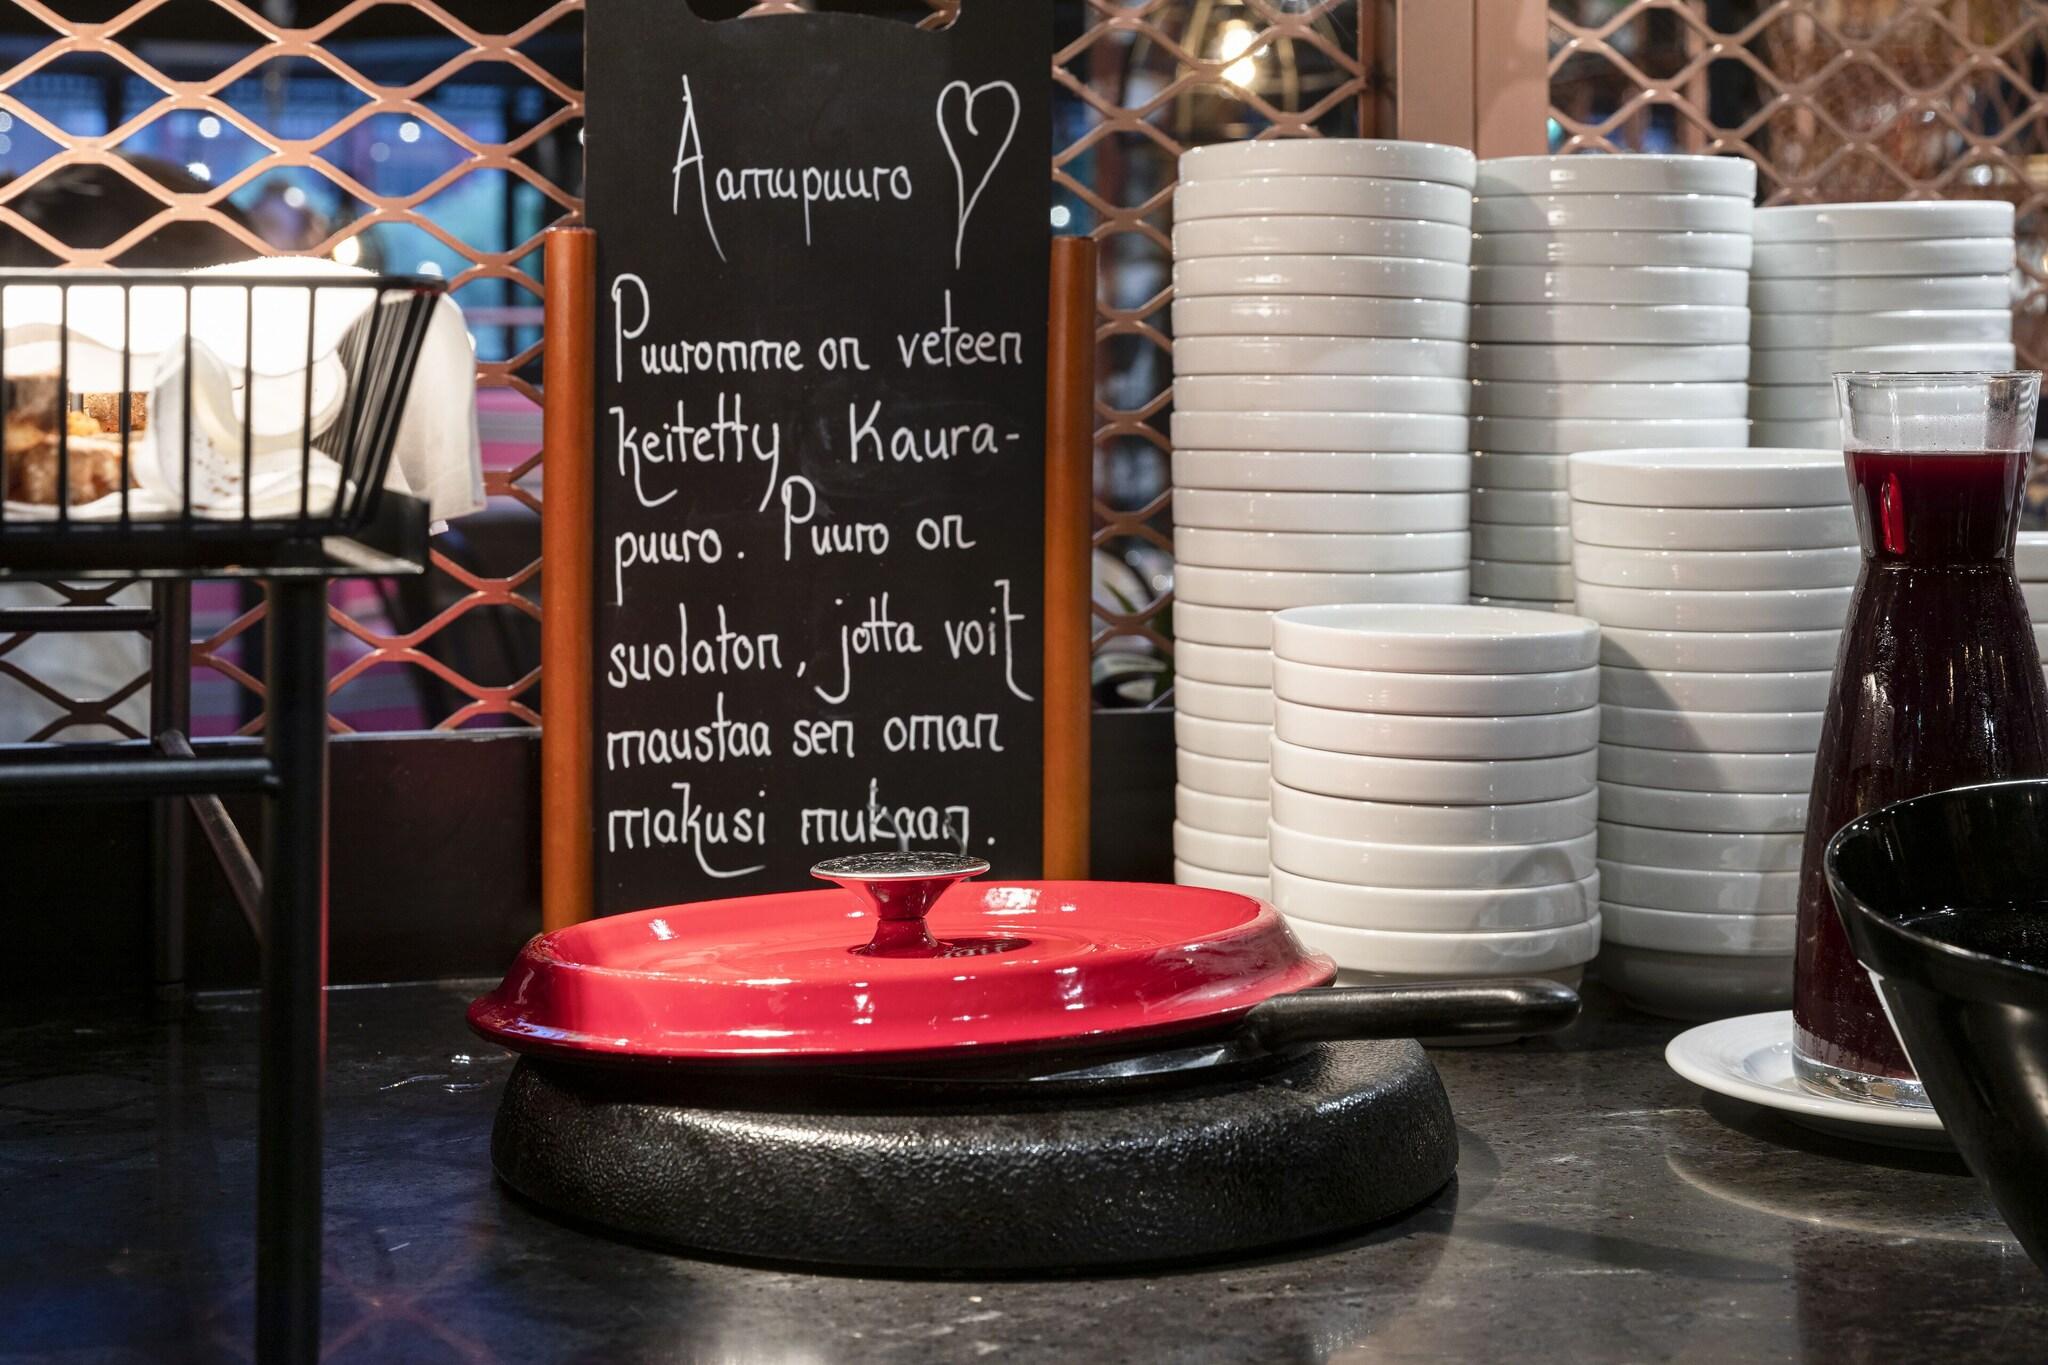 Aamupuuro
Puuromme on veteen
keitetty Kaura-
puuro. Puuro on
suolaton, jotta voit
maustaa sen oman
makusi mukaan.